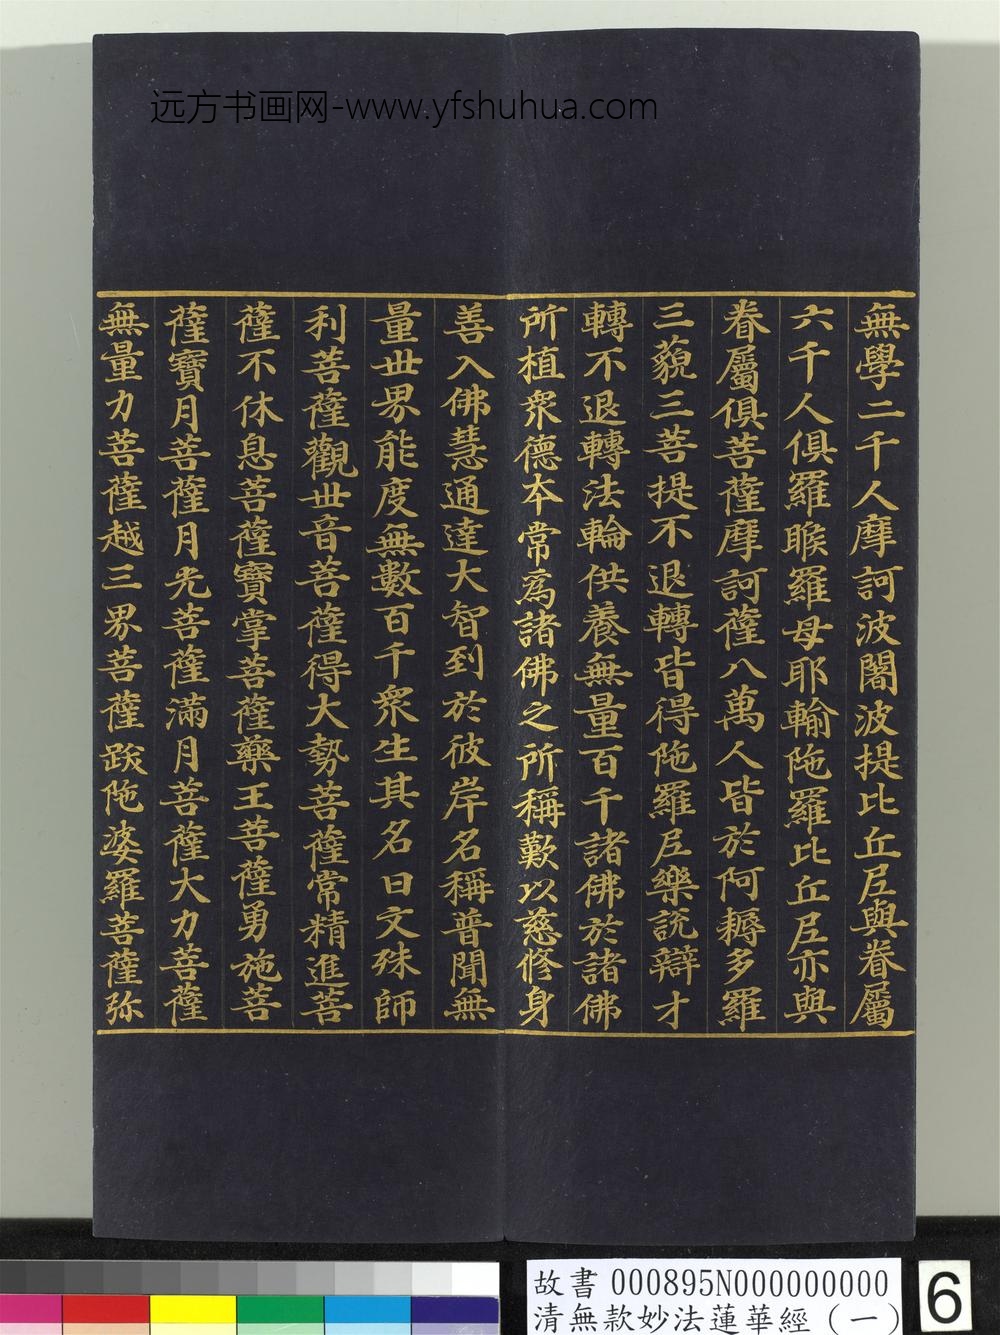 远方书画网-www.yfshuhua.com
無學二千人摩訶波闍波提比丘尼與眷屬
六千人俱羅睺羅母耶輸陁羅比丘尼亦與
眷屬俱菩薩摩訶薩八萬人皆於阿耨多羅
三藐三菩提不退轉皆得陁羅尼樂說辯才
轉不退轉法輪供養無量百千諸佛於諸佛
所植衆德夲常爲諸佛之所稱歎以慈修身
善入佛慧通達大智到於彼岸名稱普聞無
量世界能度無數百千衆生其名曰文殊師
利菩薩觀世音菩薩得大勢菩薩常精進菩
薩不休息菩薩寶掌菩薩藥王菩薩勇施菩
薩寶月菩薩月光菩薩滿月菩薩大力菩薩
無量力菩薩越三界菩薩跋陁婆羅菩薩弥
故書 000895N000000000
清無款妙法蓮華經(一)
6